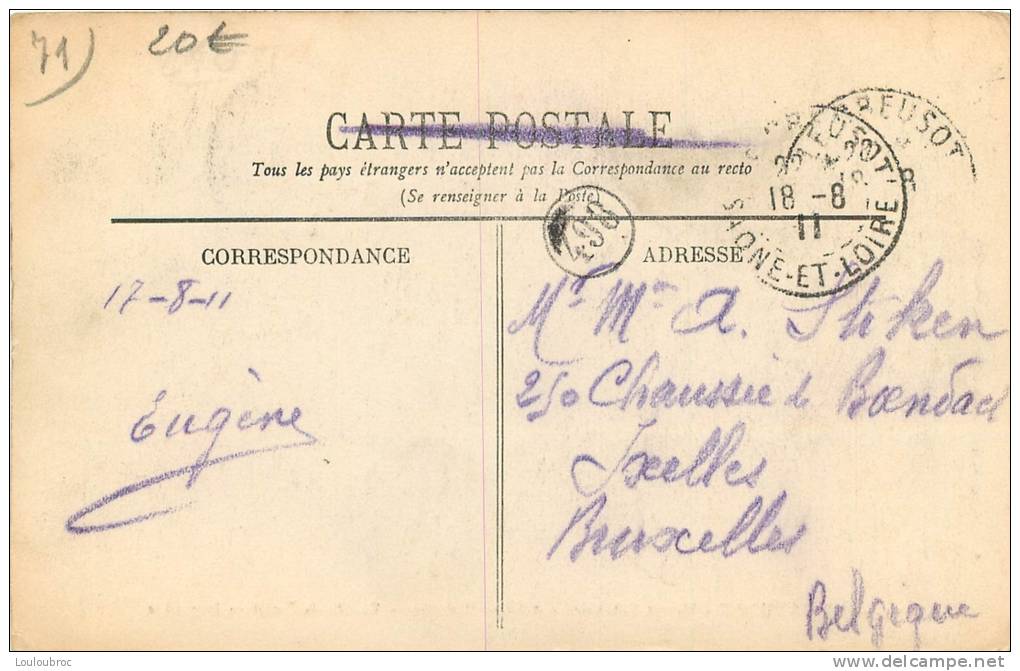 71)
20€
CARTE POSTALE
Tous les pays étrangers n'acceptent pas la Correspondance au recto
(Se renseigner à la Poste)
CREUSOT
18 -8
11
SAONE-ET-LOIRE
498
CORRESPONDANCE
ADRESSE
17-8-11
Eugène
Mr Mme A. Stiken
250 Chaussée de Boendael
Ixelles
Bruxelles
Belgique
Louloubroc
delcampe.net